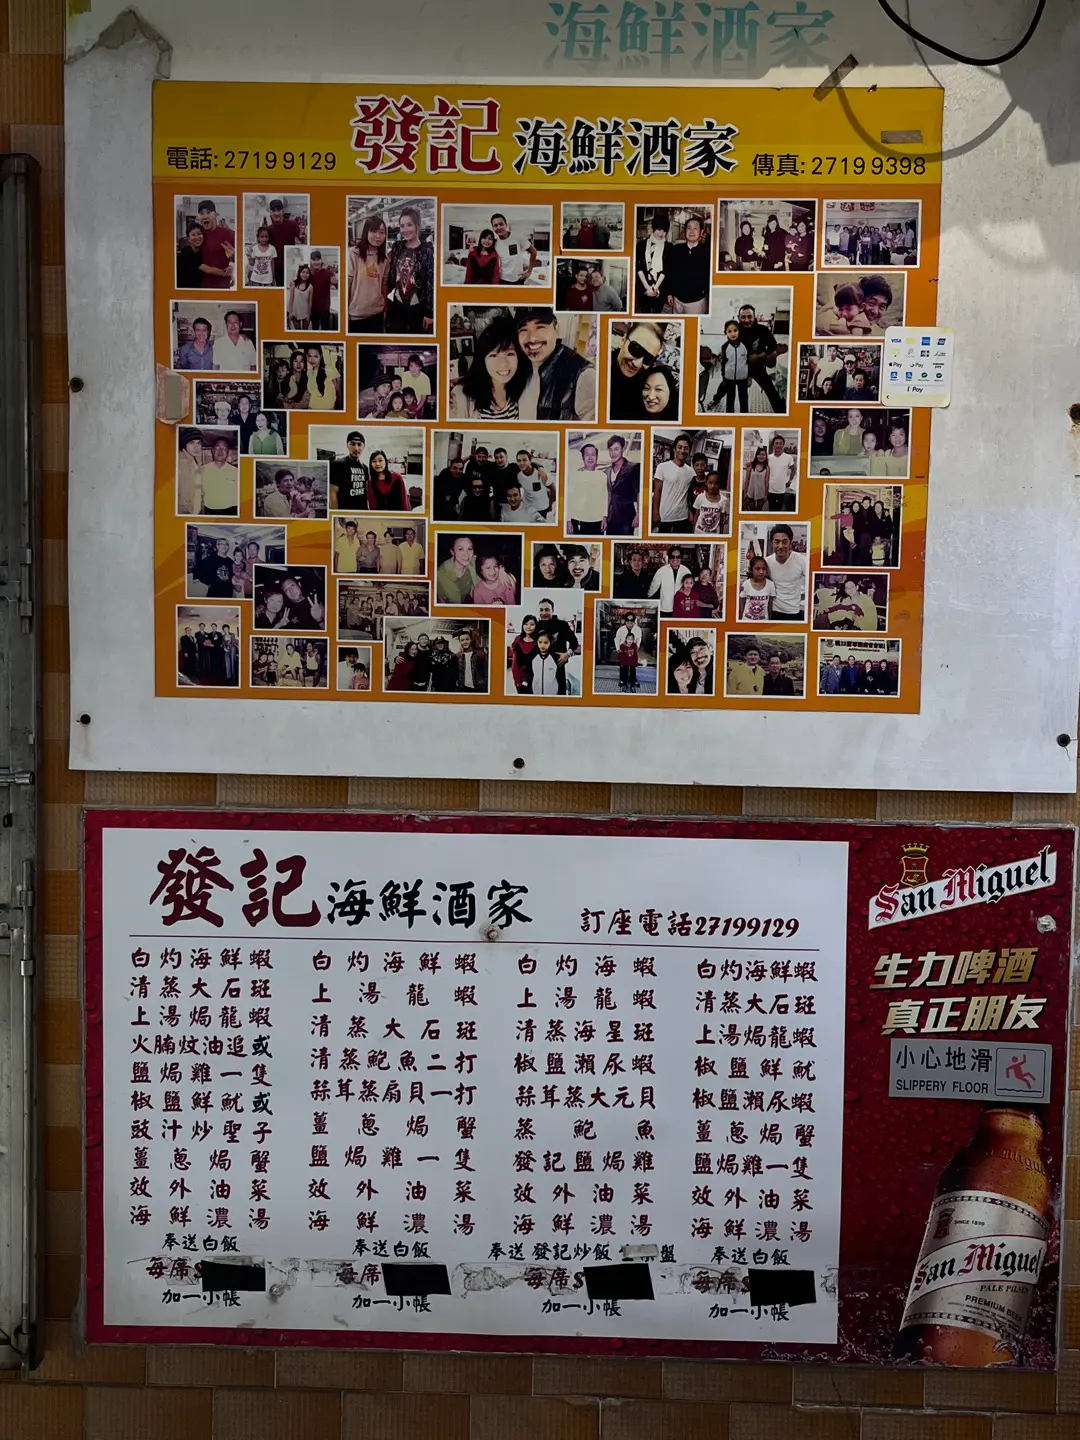 海鮮酒家
電話: 2719 9129
發記 海鮮酒家
傳真: 2719 9398
VISA
Pay
Pay
Pay
發記 海鮮酒家
訂座電話27199129
白灼海鮮蝦
清蒸大石斑
上湯焗龍蝦
火腩炆油追或
鹽焗雞一隻
椒鹽鮮魷或
豉汁炒聖子
薑蔥焗蟹
效外油菜
海鮮濃湯
奉送白飯
每席
加一小帳
白灼海鮮蝦
上湯龍蝦
清蒸大石斑
清蒸鮑魚二打
蒜茸蒸扇貝一打
薑蔥焗蟹
鹽焗雞一隻
效外油菜
海鮮濃湯
奉送白飯
每席
加一小帳
白灼海蝦
上湯龍蝦
清蒸海星斑
椒鹽瀨尿蝦
蒜茸蒸大元貝
蒸鮑魚
發記鹽焗雞
效外油菜
海鮮濃湯
奉送 發記炒飯 盤
每席S
加一小帳
白灼海鮮蝦
清蒸大石斑
上湯焗龍蝦
椒鹽鮮魷
椒鹽瀨尿蝦
薑蔥焗蟹
鹽焗雞一隻
效外油菜
海鮮濃湯
奉送白飯
每席
加一小帳
San Miguel
生力啤酒
真正朋友
小心地滑
SLIPPERY FLOOR
San Miguel
SINCE 1890
San Miguel
PALE PILSEN
PREMIUM BEER